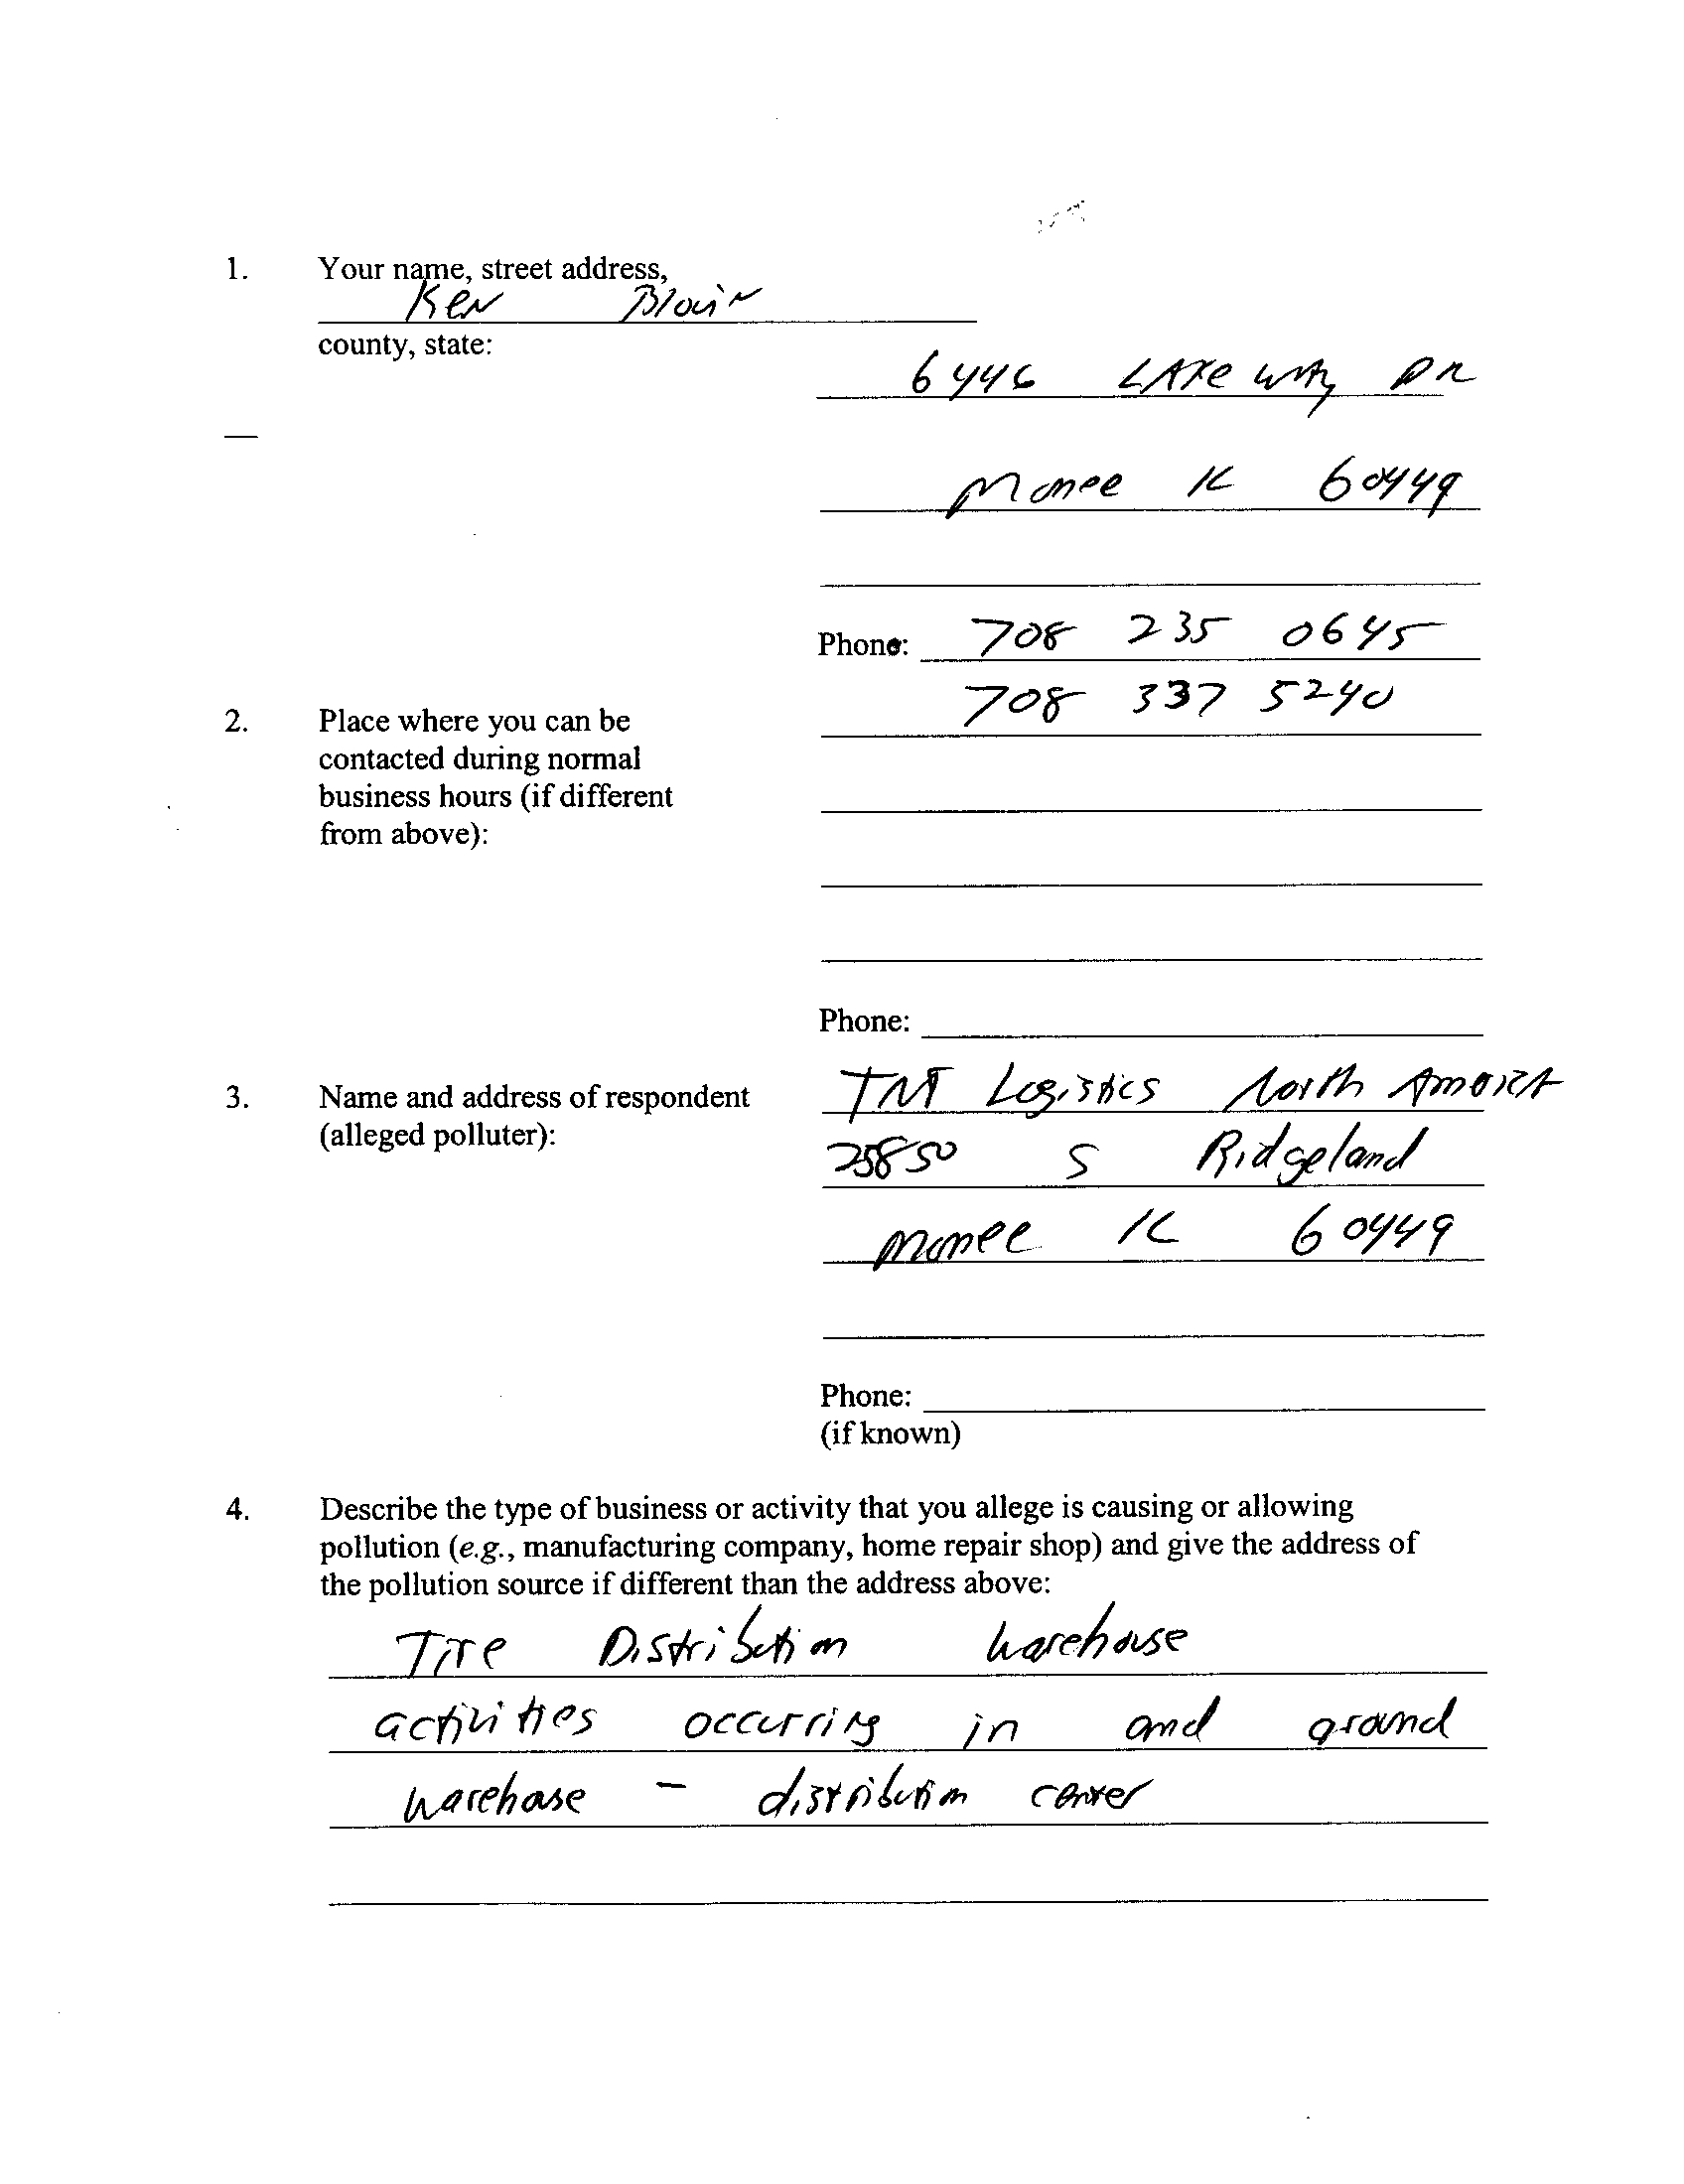 1. Your name, street address,
Ken Blouin
county, state:
6446 LAKE WAY DR
Monee IL 60449
Phone: 708 235 0645
708 337 5240
2. Place where you can be
contacted during normal
business hours (if different
from above):
Phone:
3. Name and address of respondent
(alleged polluter):
TNT Logistics North America
25850 S Ridgeland
Monee IL 60449
Phone:
(if known)
4. Describe the type of business or activity that you allege is causing or allowing
pollution (e.g., manufacturing company, home repair shop) and give the address of
the pollution source if different than the address above:
Tire Distribution warehouse
activities occurring in and around
warehouse - distribution center